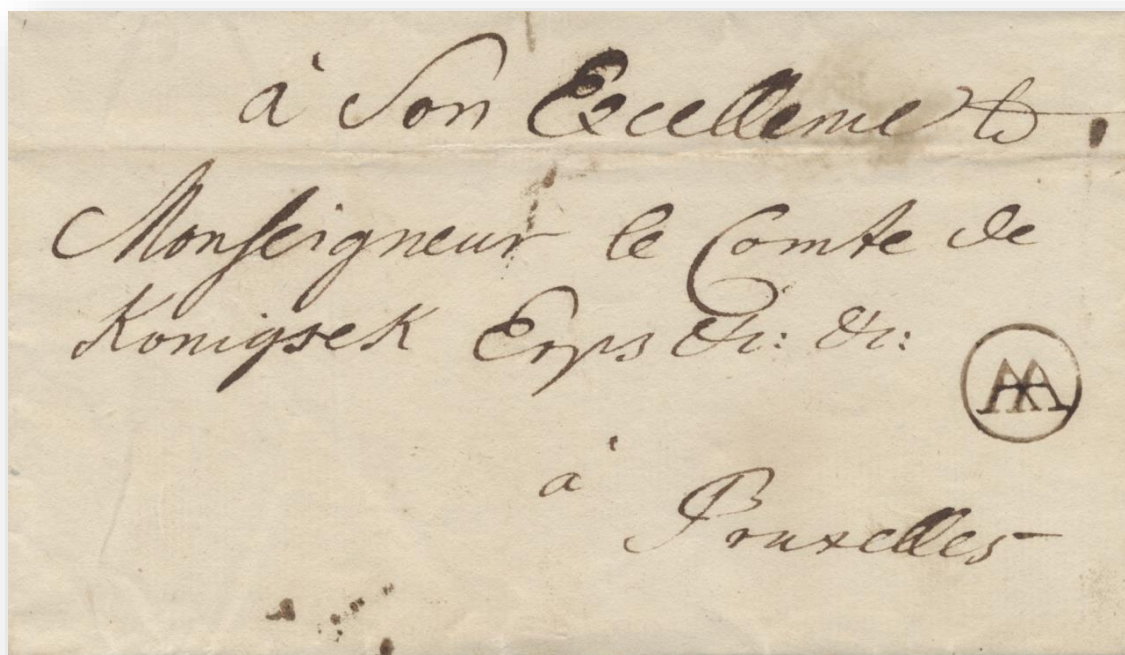 à Son Excellence
Monseigneur le Comte de
Konigsek Erps &c: &c:
AA
à
Bruxelles